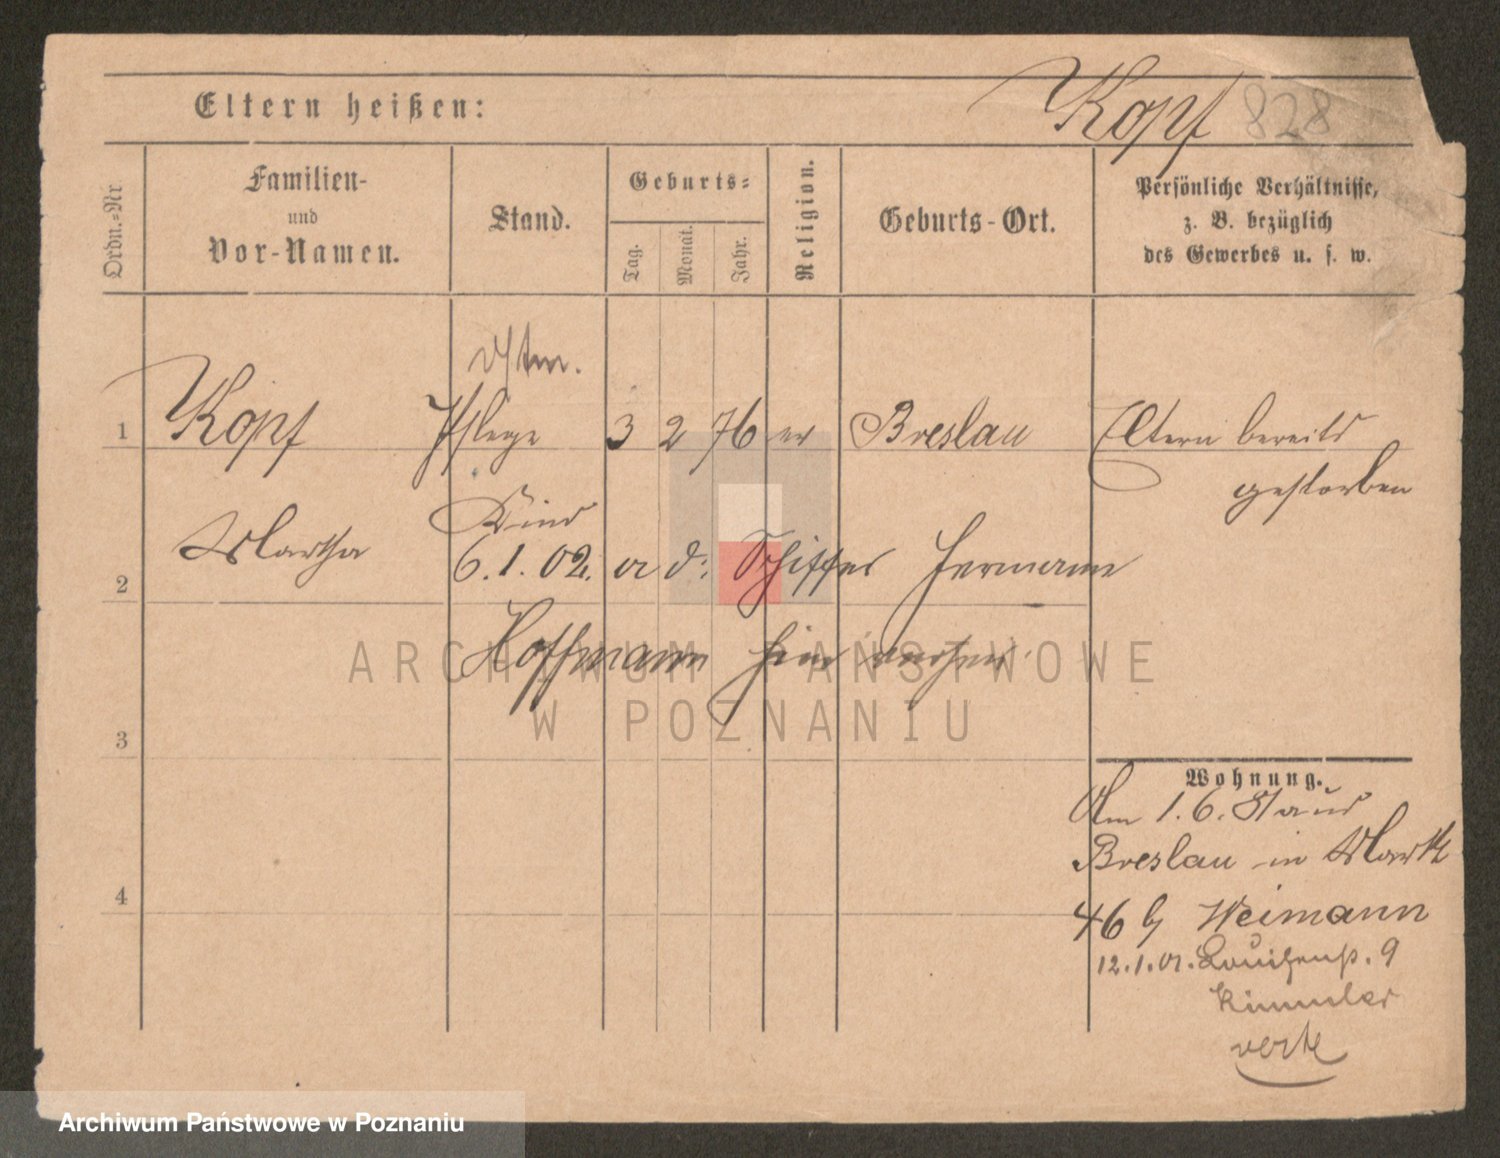 Eltern heißen:
Kopf 828
Ordn.-Nr.
Familien-
und
Vor-Namen.
Stand.
Geburts-
Tag.
Monat.
Jahr.
Religion.
Geburts-Ort.
Persönliche Verhältnisse,
z. B. bezüglich
des Gewerbes u. s. w.
1 Kopf Pflege 3 2 76 ev Breslau Eltern bereits
gestorben
Martha Kind
2 6.1.02. a d: Schiffer Hermann
Hoffmann hier
3
Wohnung.
Am 1.6. aus
Breslau in Markt
46 b/ Weimann
4
12.1.01. Louisenstr. 9
Kimmler
verte
ARCHIWUM PAŃSTWOWE
W POZNANIU
Archiwum Państwowe w Poznaniu